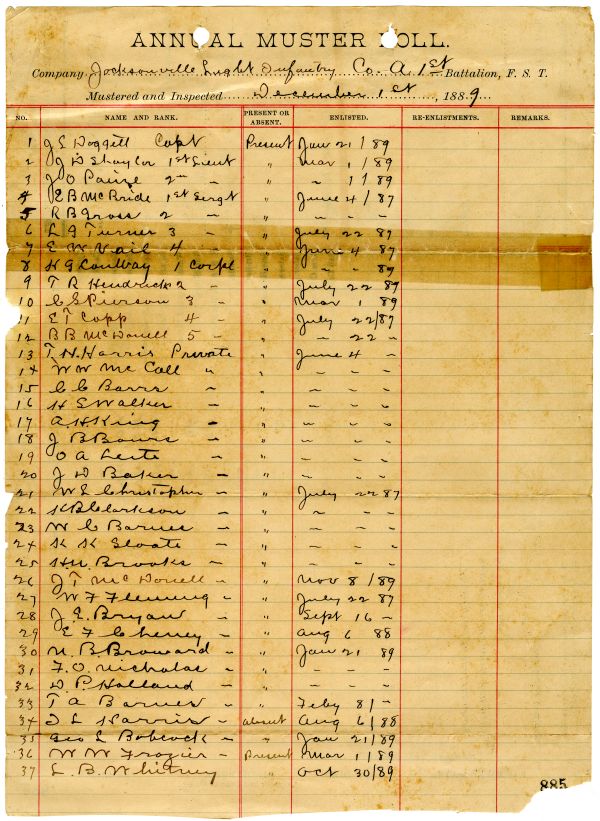 ANNUAL MUSTER ROLL.
Company Jacksonville Light Infantry Co. A 1st Battalion, F. S. T.
Mustered and Inspected December 1st, 1889
NO. NAME AND RANK. PRESENT OR ABSENT. ENLISTED. RE-ENLISTMENTS. REMARKS.
1 J E Doggett Capt Present Jan 21/89
2 J D Shaylor 1st Lieut " Mar 1/89
3 J O 2nd – " – 1/89
4 E B McBride 1st Sergt " June 4/87
5 R B Gross 2 – " – – –
6 L G Turner 3 – " July 22 87
7 E W Vail 4 – " June 4 87
8 H G Conway 1 Corpl " – – 89
9 T R Hendricks 2 – " July 22 89
10 C S Pierson 3 – " Mar 1 89
11 E T Capp 4 – " July 22/87
12 B B McDonell 5 – " – 22 –
13 T. H. Harris Private " June 4 –
14 W W McCall " " – – –
15 C C Barrs – " – – –
16 H S Walker – " – – –
17 A. H. King – " – – –
18 J B Bours – " – – –
19 O A – " – – –
20 J D Baker – " – – –
21 W E Christopher – " July 22 87
22 K B Clarkson – " – – –
23 W C Barnes – " – – –
24 K K Sloate – " – – –
25 H. M. Brooks – " – – –
26 J T McDonell – " Nov 8/89
27 W F Fleming – " July 22 87
28 J. E. Bryan – " Sept 16 –
29 E F Cheney – " Aug 6 88
30 N. B. Broward – " Jan 21 89
31 F. O. Nicholas – " – – –
32 D P Holland – " – – –
33 T A Barnes – " Feby 8/–
34 T L Harris – absent Aug 6/88
35 Geo L Babcock – " Jan 21/89
36 W W Frazier – Present Mar 1/89
37 L. B. Whitney " Oct 30/89
885